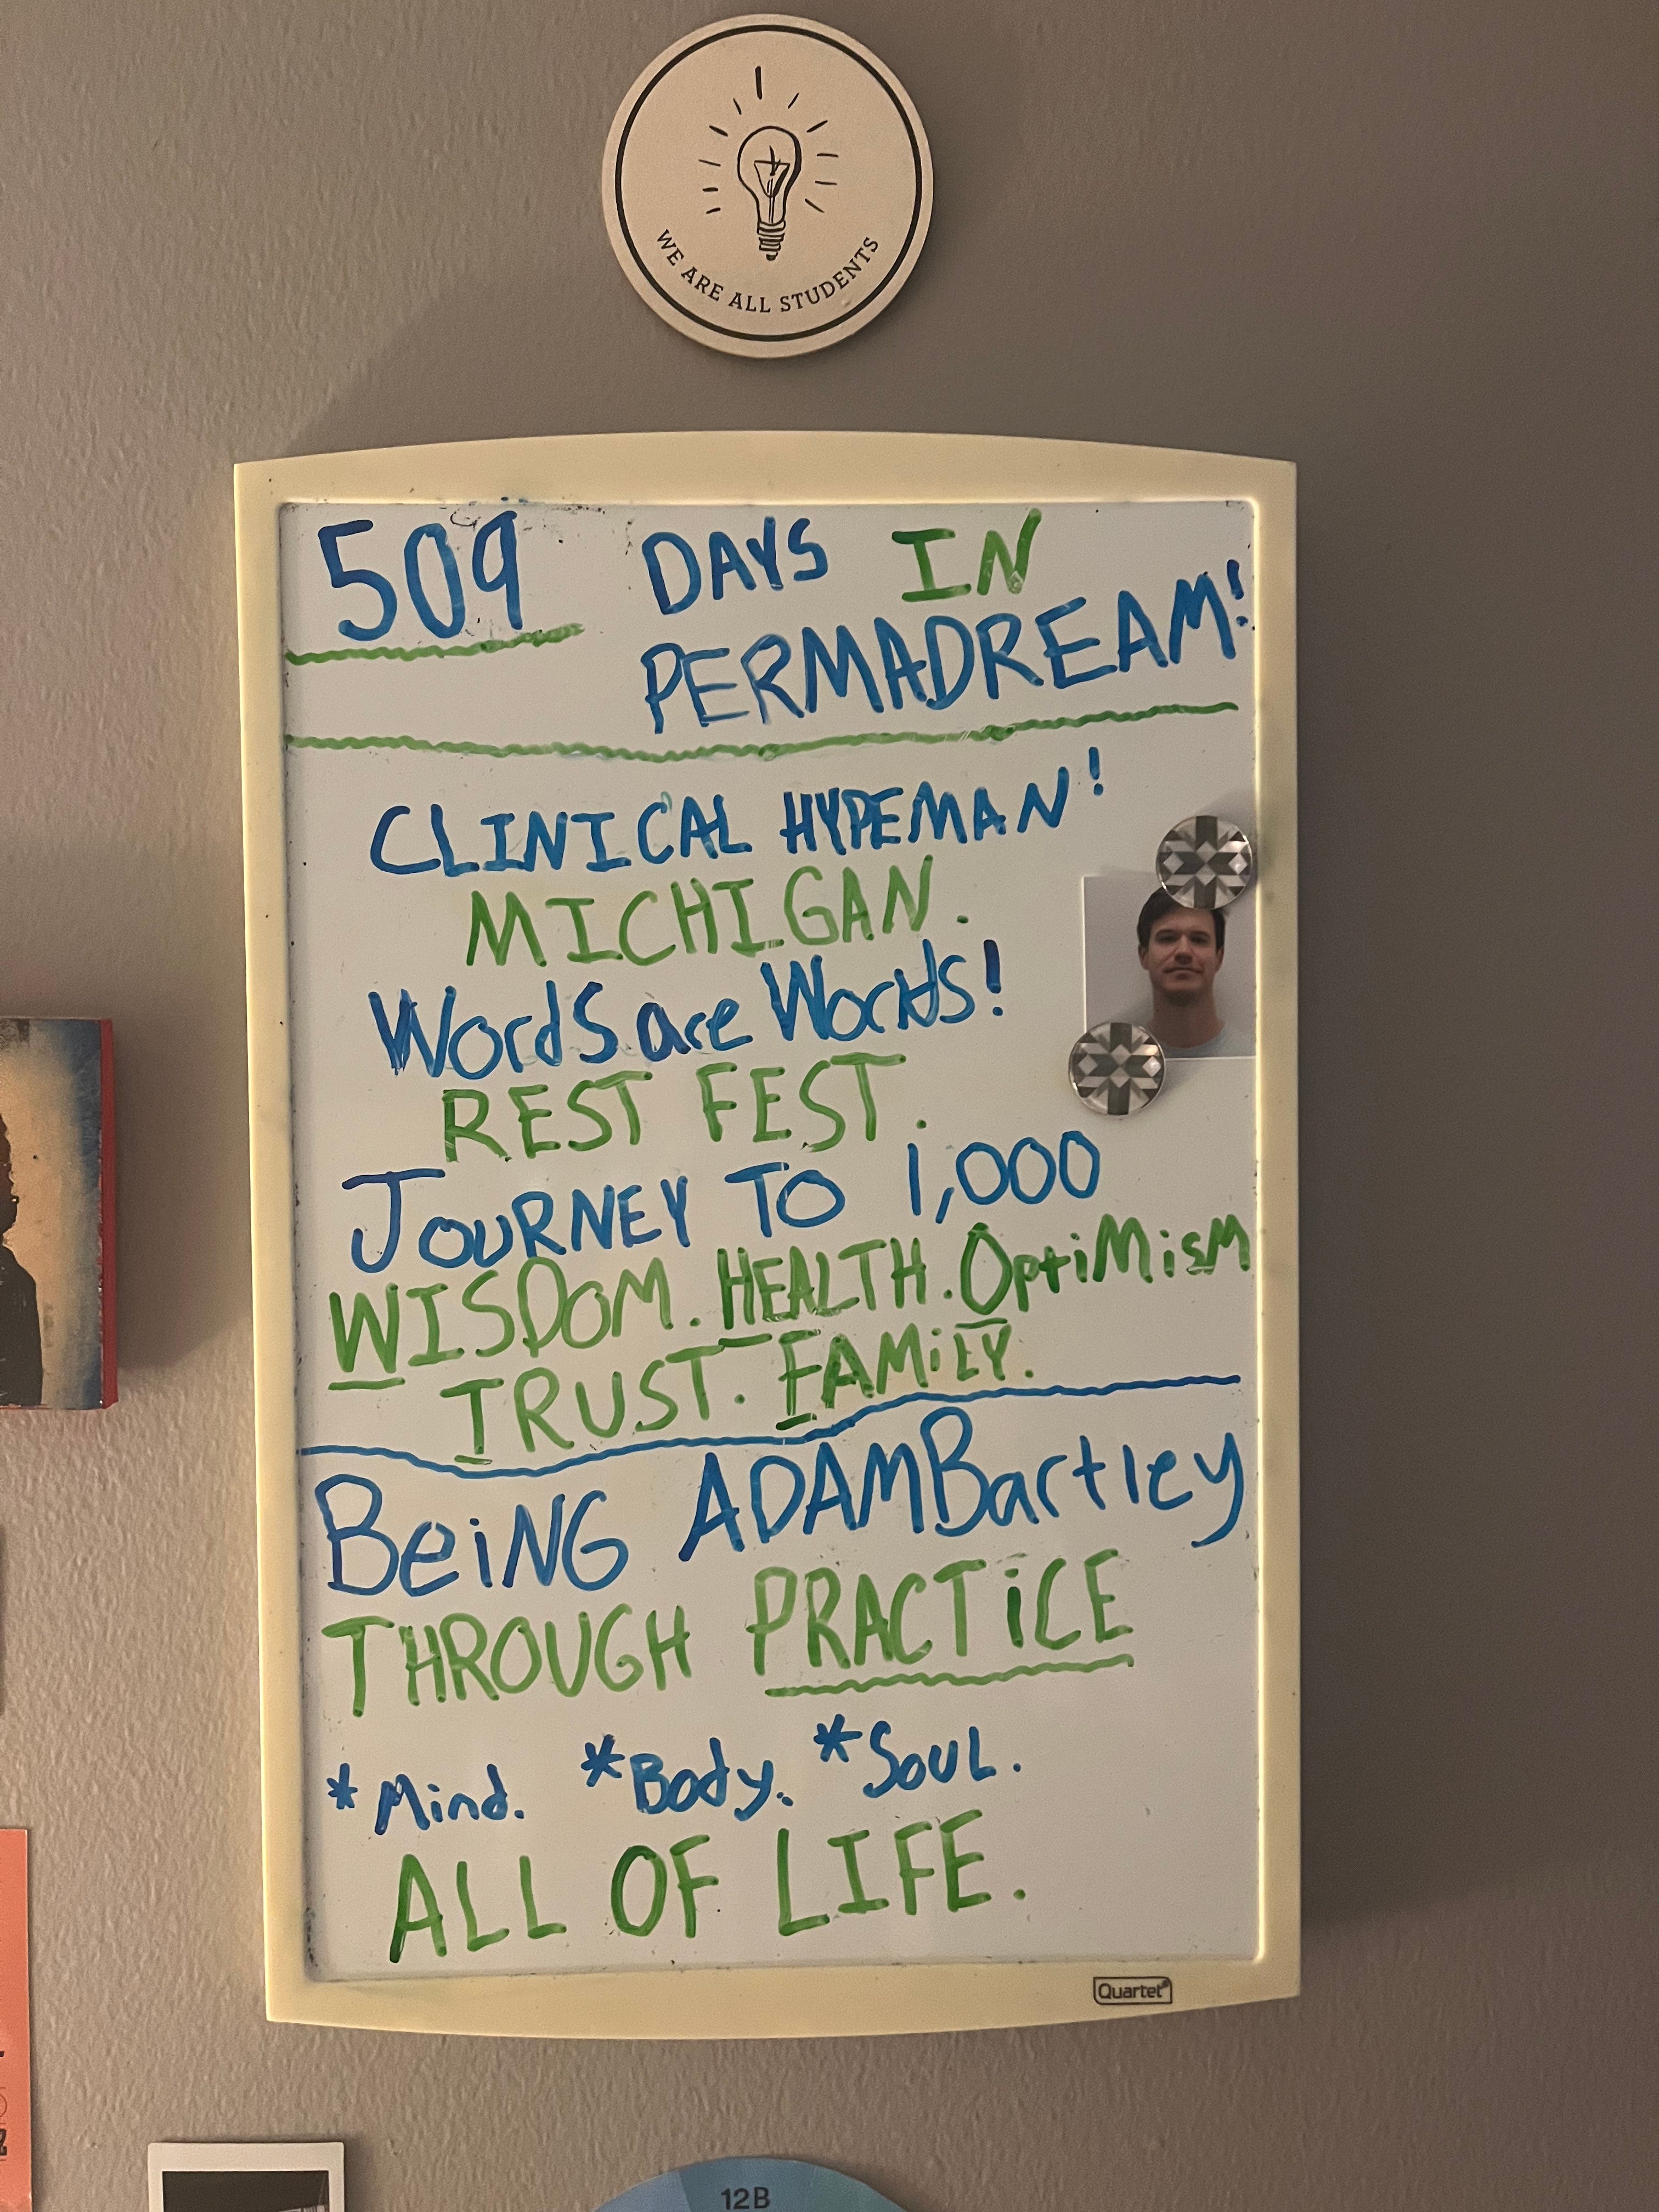 WE ARE ALL STUDENTS
509 DAYS IN
PERMADREAM!
CLINICAL HYPEMAN!
MICHIGAN.
Words are Worlds!
REST FEST.
JOURNEY TO 1,000
WISDOM. HEALTH. OptiMisM
TRUST. FAMiLY.
BeiNG ADAMBartley
THROUGH PRACTiCE
*Mind. *Body. *SouL.
ALL OF LIFE.
Quartet
12B